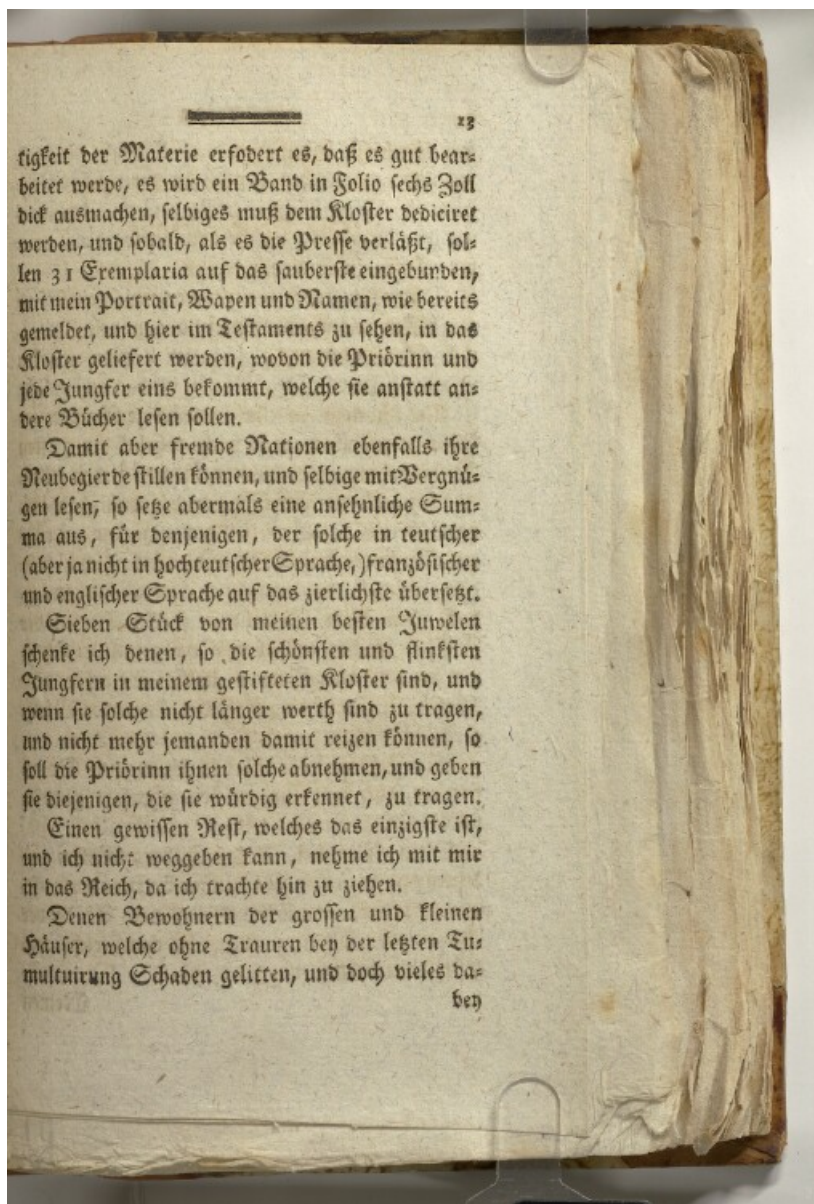 13
tigkeit der Materie erfodert es, daß es gut bear-
beitet werde, es wird ein Band in Folio sechs Zoll
dick ausmachen, selbiges muß dem Kloster dediciret
werden, und sobald, als es die Presse verläßt, sol-
len 31 Exemplaria auf das sauberste eingebunden,
mit mein Portrait, Wapen und Namen, wie bereits
gemeldet, und hier im Testaments zu sehen, in das
Kloster geliefert werden, wovon die Priörinn und
jede Jungfer eins bekommt, welche sie anstatt an-
dere Bücher lesen sollen.
Damit aber fremde Nationen ebenfalls ihre
Neubegierde stillen können, und selbige mit Vergnü-
gen lesen, so setze abermals eine ansehnliche Sum-
ma aus, für denjenigen, der solche in teutscher
(aber ja nicht in hochteutscher Sprache,) französischer
und englischer Sprache auf das zierlichste übersetzt.
Sieben Stück von meinen besten Juwelen
schenke ich denen, so die schönsten und flinksten
Jungfern in meinem gestifteten Kloster sind, und
wenn sie solche nicht länger werth sind zu tragen,
und nicht mehr jemanden damit reizen können, so
soll die Priörinn ihnen solche abnehmen, und geben
sie diejenigen, die sie würdig erkennet, zu tragen.
Einen gewissen Rest, welches das einzigste ist,
und ich nicht weggeben kann, nehme ich mit mir
in das Reich, da ich trachte hin zu ziehen.
Denen Bewohnern der grossen und kleinen
Häuser, welche ohne Trauren bey der letzten Tu-
multuirung Schaden gelitten, und doch vieles da-
bey